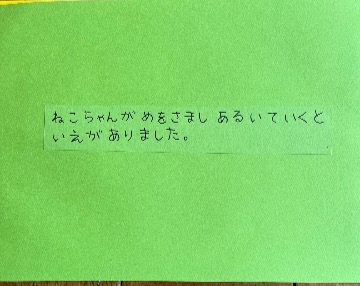 ねこちゃんが めをさまし あるいていくと
いえがありました。